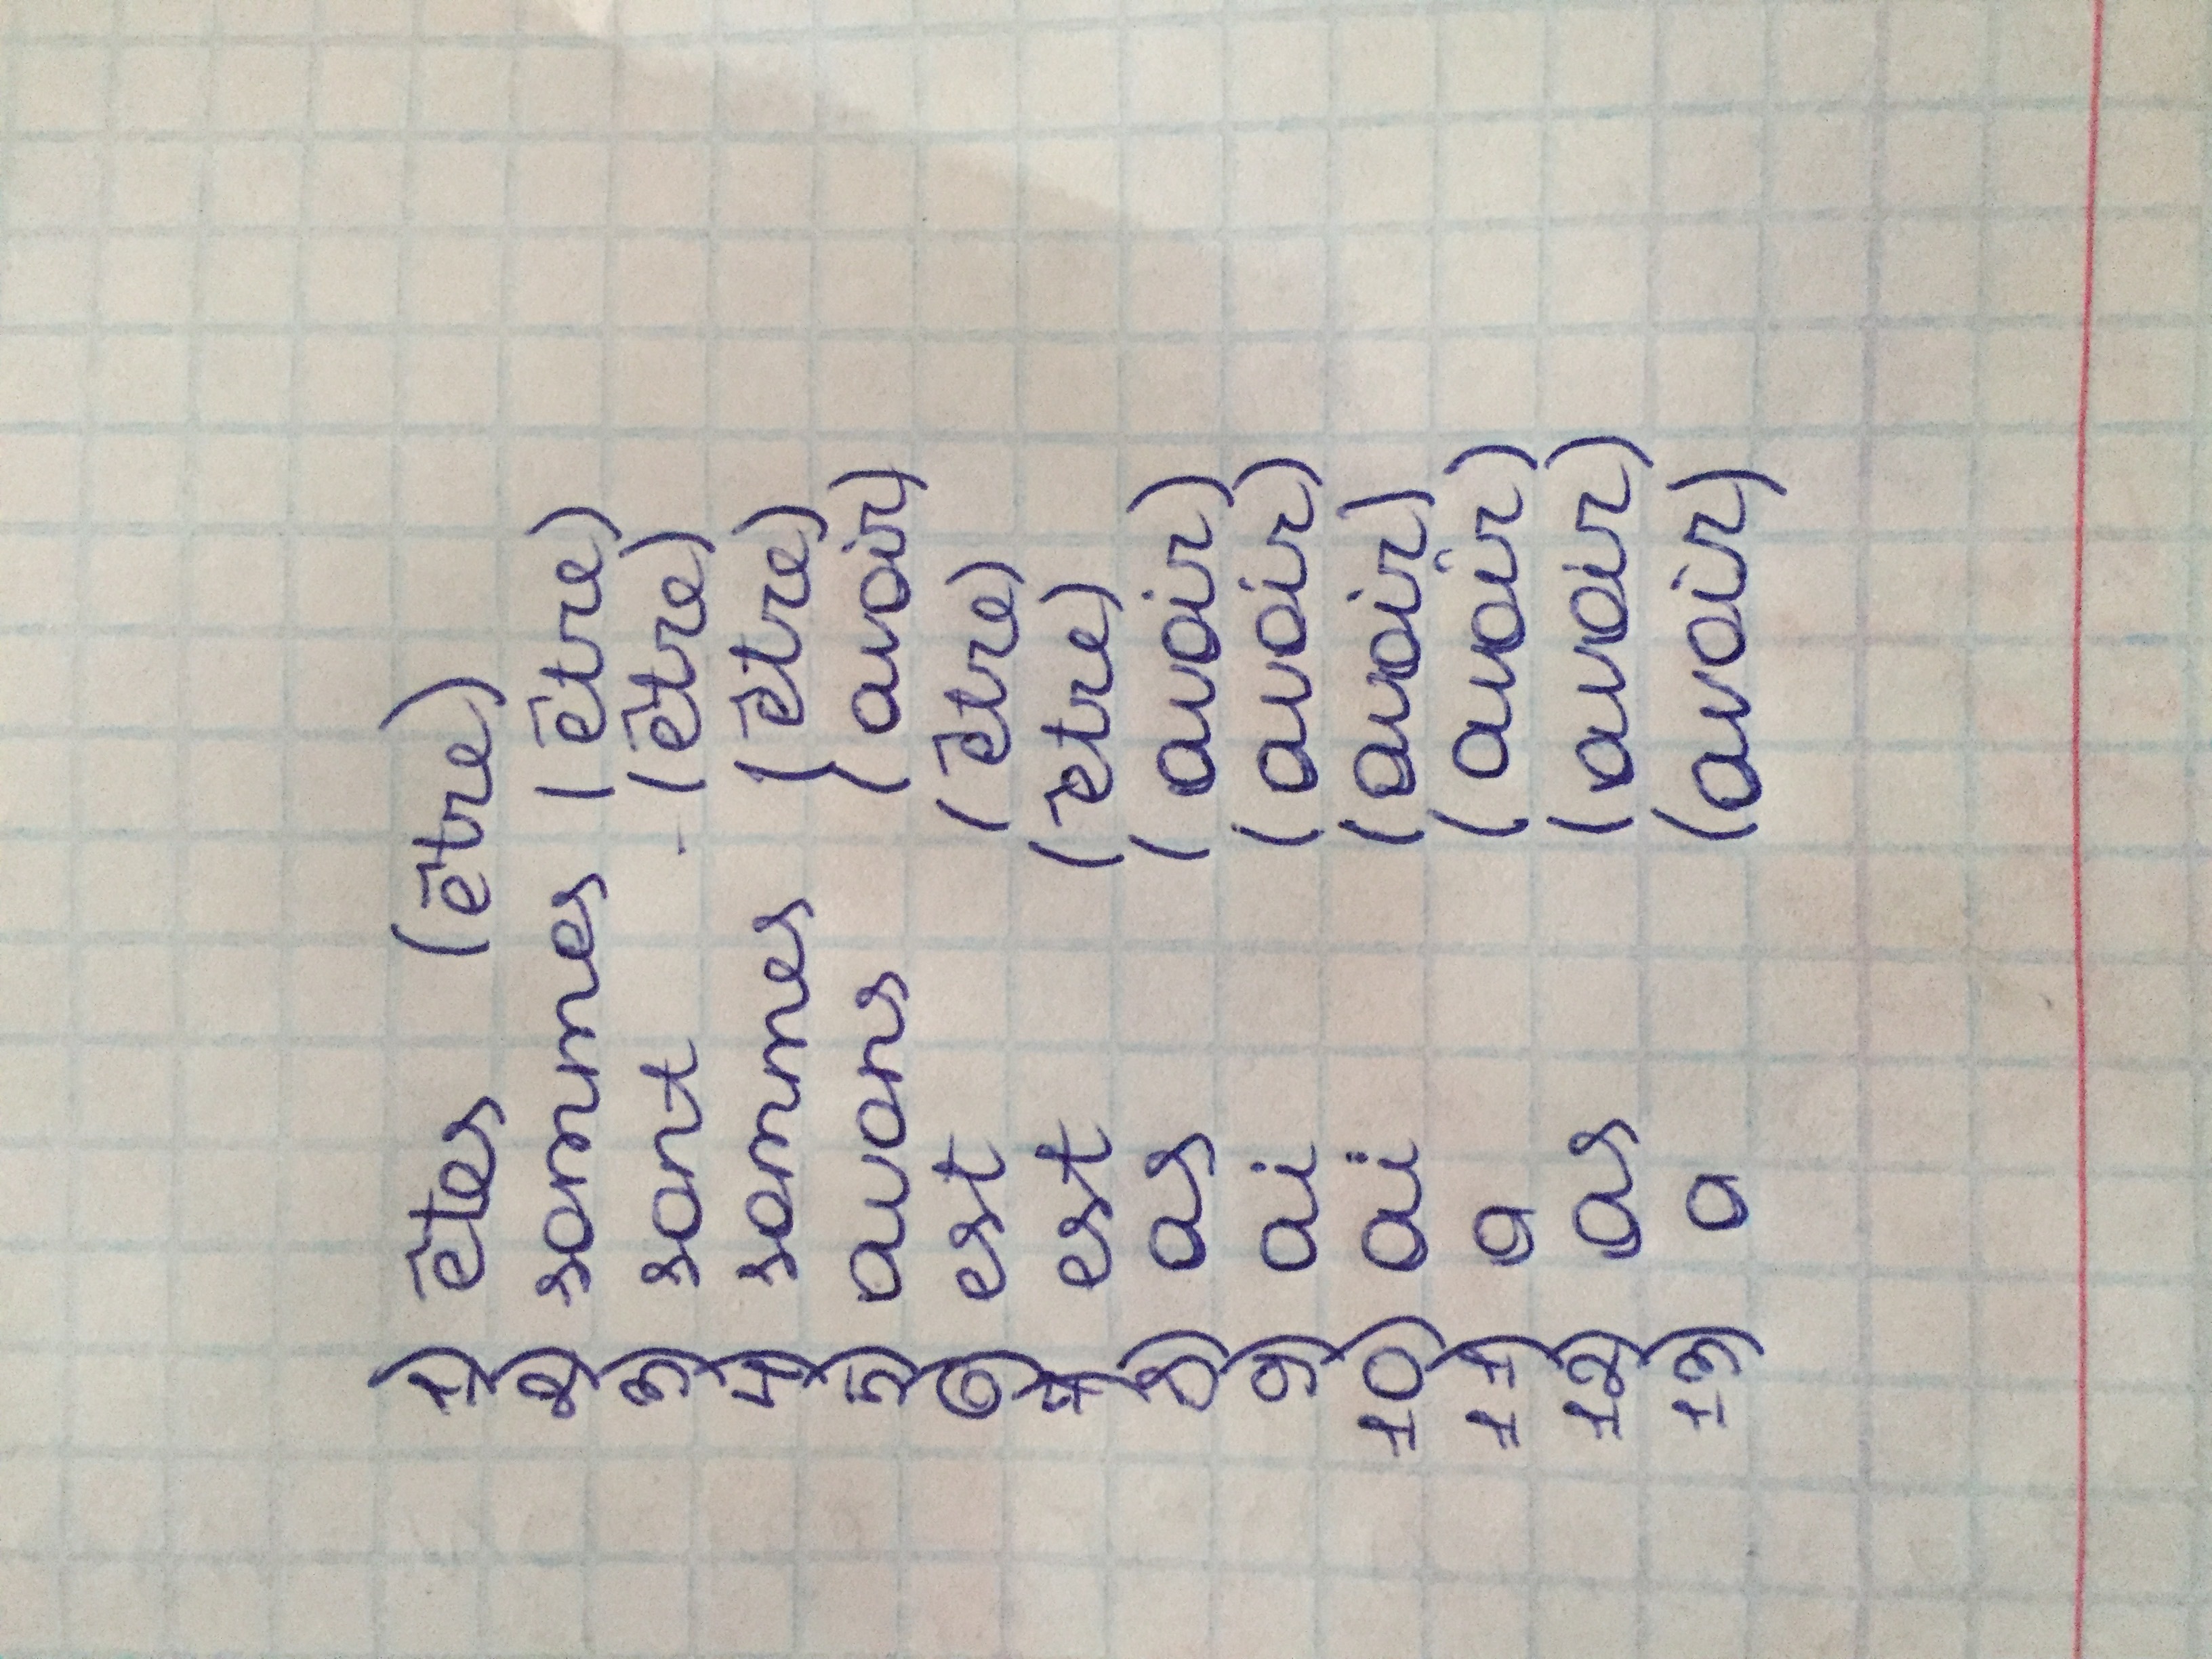 1) êtes (être)
2) sommes (être)
3) sont (être)
4) sommes (être)
5) avons (avoir)
6) est (être)
7) est (être)
8) as (avoir)
9) ai (avoir)
10) ai (avoir)
11) a (avoir)
12) as (avoir)
13) a (avoir)